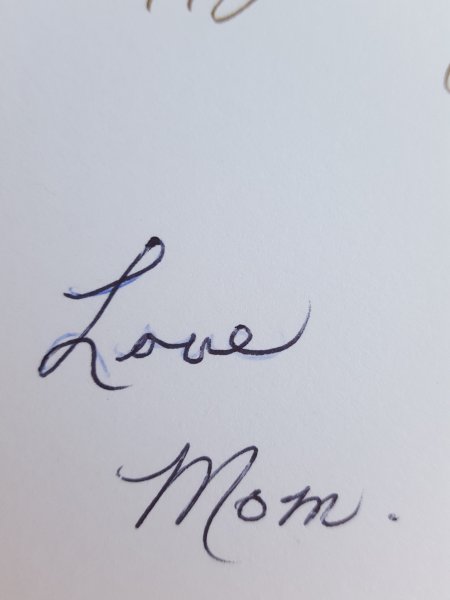 Love
Mom.